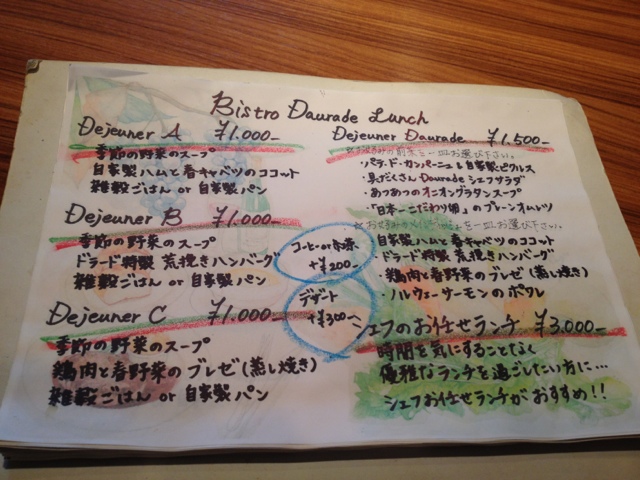 Bistro Daurade Lunch
Dejeuner A ¥1.000-
季節の野菜のスープ
自家製ハムと春キャベツのココット
雑穀ごはん or 自家製パン
Dejeuner B ¥1.000-
季節の野菜のスープ
ドラード特製 荒挽きハンバーグ
雑穀ごはん or 自家製パン
Dejeuner C ¥1.000-
季節の野菜のスープ
鶏肉と春野菜のブレゼ(蒸し焼き)
雑穀ごはん or 自家製パン
コーヒー or 紅茶
+¥200-
デザート
+¥300-
Dejeuner Daurade ¥1.500-
☆お好みの前菜を一皿お選び下さい。
・パテ・ド・カンパーニュと自家製ピクルス
・具だくさん Daurade シェフサラダ
・あつあつのオニオングラタンスープ
・「日本一こだわり卵」のプレーンオムレツ
を一皿お選び下さい。
・自家製ハムと春キャベツのココット
・ドラード特製 荒挽きハンバーグ
・鶏肉と春野菜のブレゼ(蒸し焼き)
・ノルウェーサーモンのポワレ
シェフのお任せランチ ¥3.000-
時間を気にすることなく
優雅なランチを過ごしたい方に…
シェフお任せランチがおすすめ!!